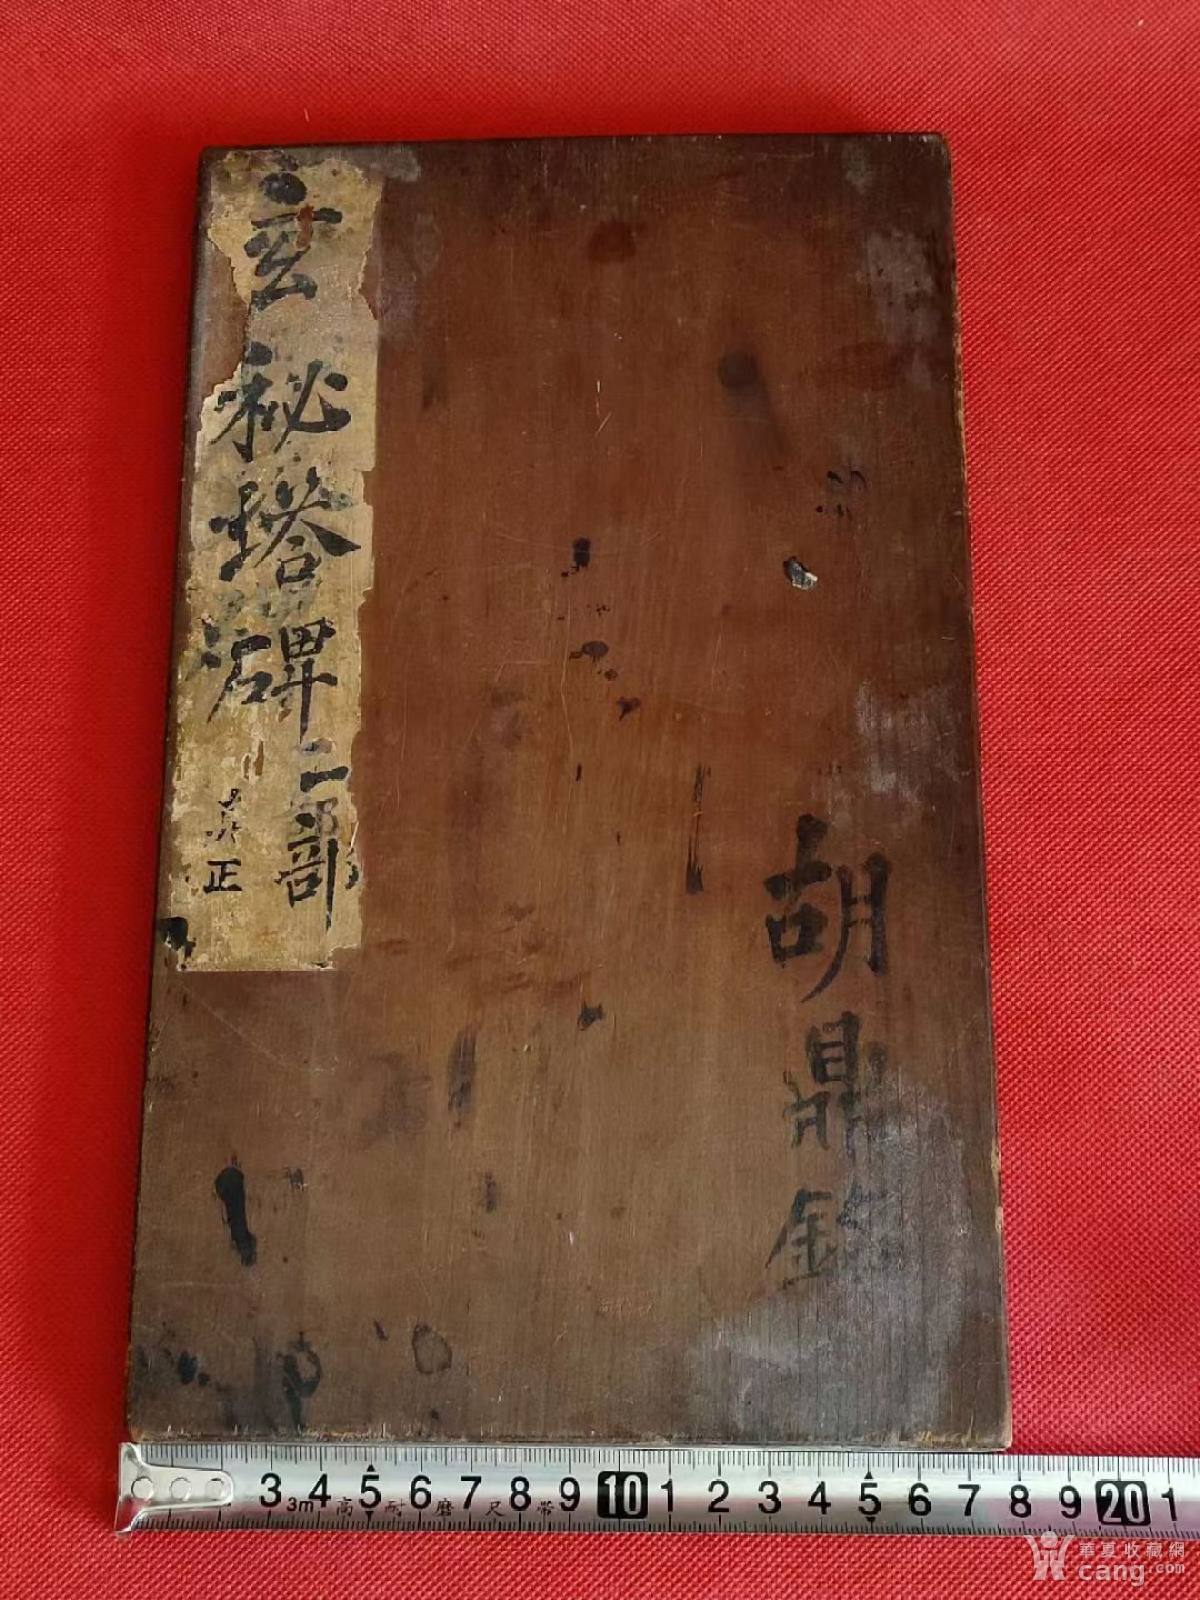 玄秘塔碑二部
真正
胡鼎銘
3 3m 4 高 5 耐 6 磨 7 尺 8 帶 9 10 1 2 3 4 5 6 7 8 9 20 1
華夏收藏網
cang.com